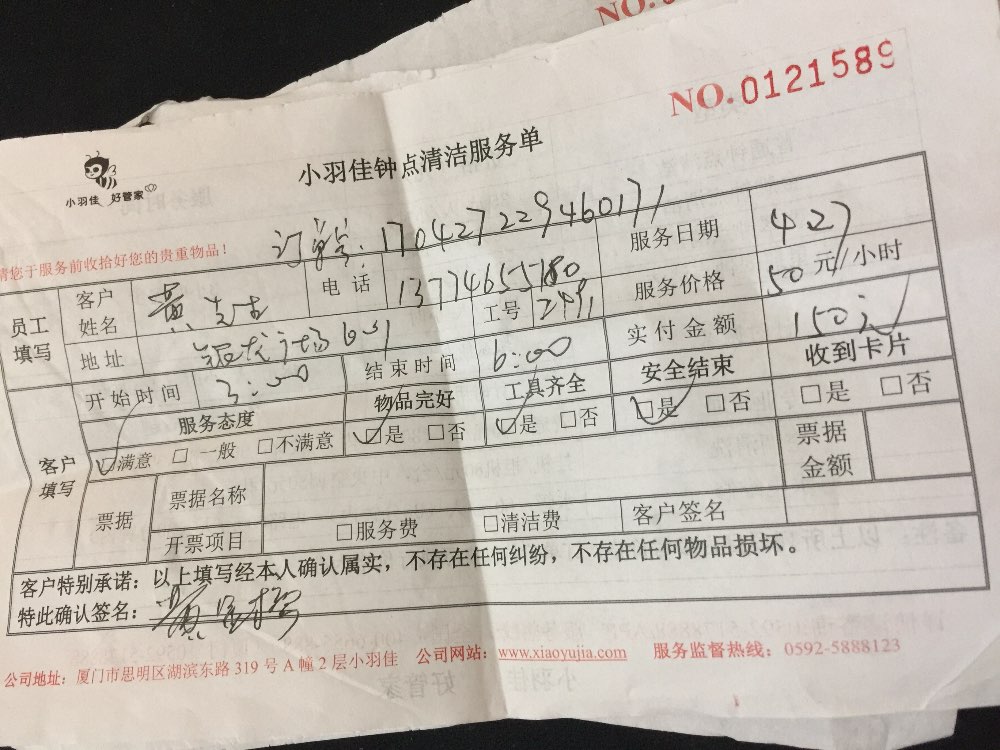 NO.
NO.0121589
小羽佳 好管家
小羽佳钟点清洁服务单
请您于服务前收拾好您的贵重物品！
170427229460171
员工填写 客户姓名 黄先生 电话 13774655180 服务日期 4.27
地址 广场 601 工号 2491 服务价格 50元/小时
开始时间 3:00 结束时间 6:00 实付金额 150元
客户填写 服务态度 物品完好 工具齐全 安全结束 收到卡片
☑满意 □一般 □不满意 ☑是 □否 ☑是 □否 ☑是 □否 □是 □否
票据 票据名称 票据金额
开票项目 □服务费 □清洁费 客户签名
客户特别承诺：以上填写经本人确认属实，不存在任何纠纷，不存在任何物品损坏。
特此确认签名：黄
公司地址：厦门市思明区湖滨东路 319 号 A 幢 2 层小羽佳 公司网站：www.xiaoyujia.com 服务监督热线：0592-5888123